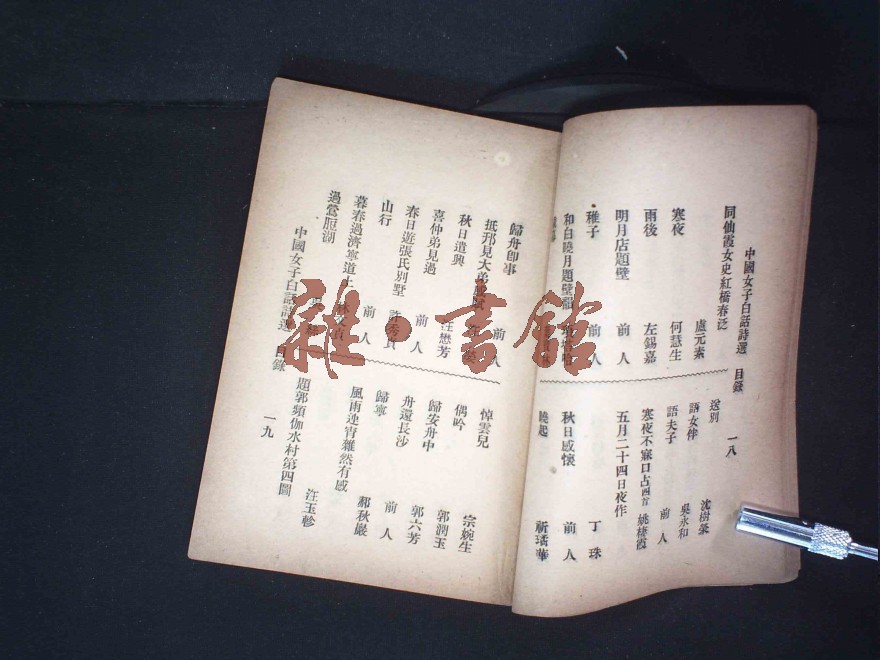 中國女子白話詩選 目錄 一八
同仙霞女史紅橋春泛 盧元素
寒夜 何慧生
雨後 左錫嘉
明月店題壁 前人
稚子 前人
和白曉月題壁韻
送別 沈樹榮
語女伴 吳永和
語夫子 前人
寒夜不寐口占四首 姚棲霞
五月二十四日夜作 前人
秋日感懷 丁珠
曉起 靳瑤華
歸舟即事 前人
抵邗見大弟
秋日遣興 前人
喜仲弟見過 汪懋芳
春日遊張氏別墅 前人
山行 許秀貞
暮春過濟寧道上
過鶯脰湖
悼雲兒 宗婉生
偶吟 郭潤玉
歸安舟中 郭六芳
舟還長沙 前人
歸寧 郝秋巖
風雨連宵雜然有感
題郭頻伽水村第四圖 汪玉軫
中國女子白話詩選 目錄 一九
雜·書館